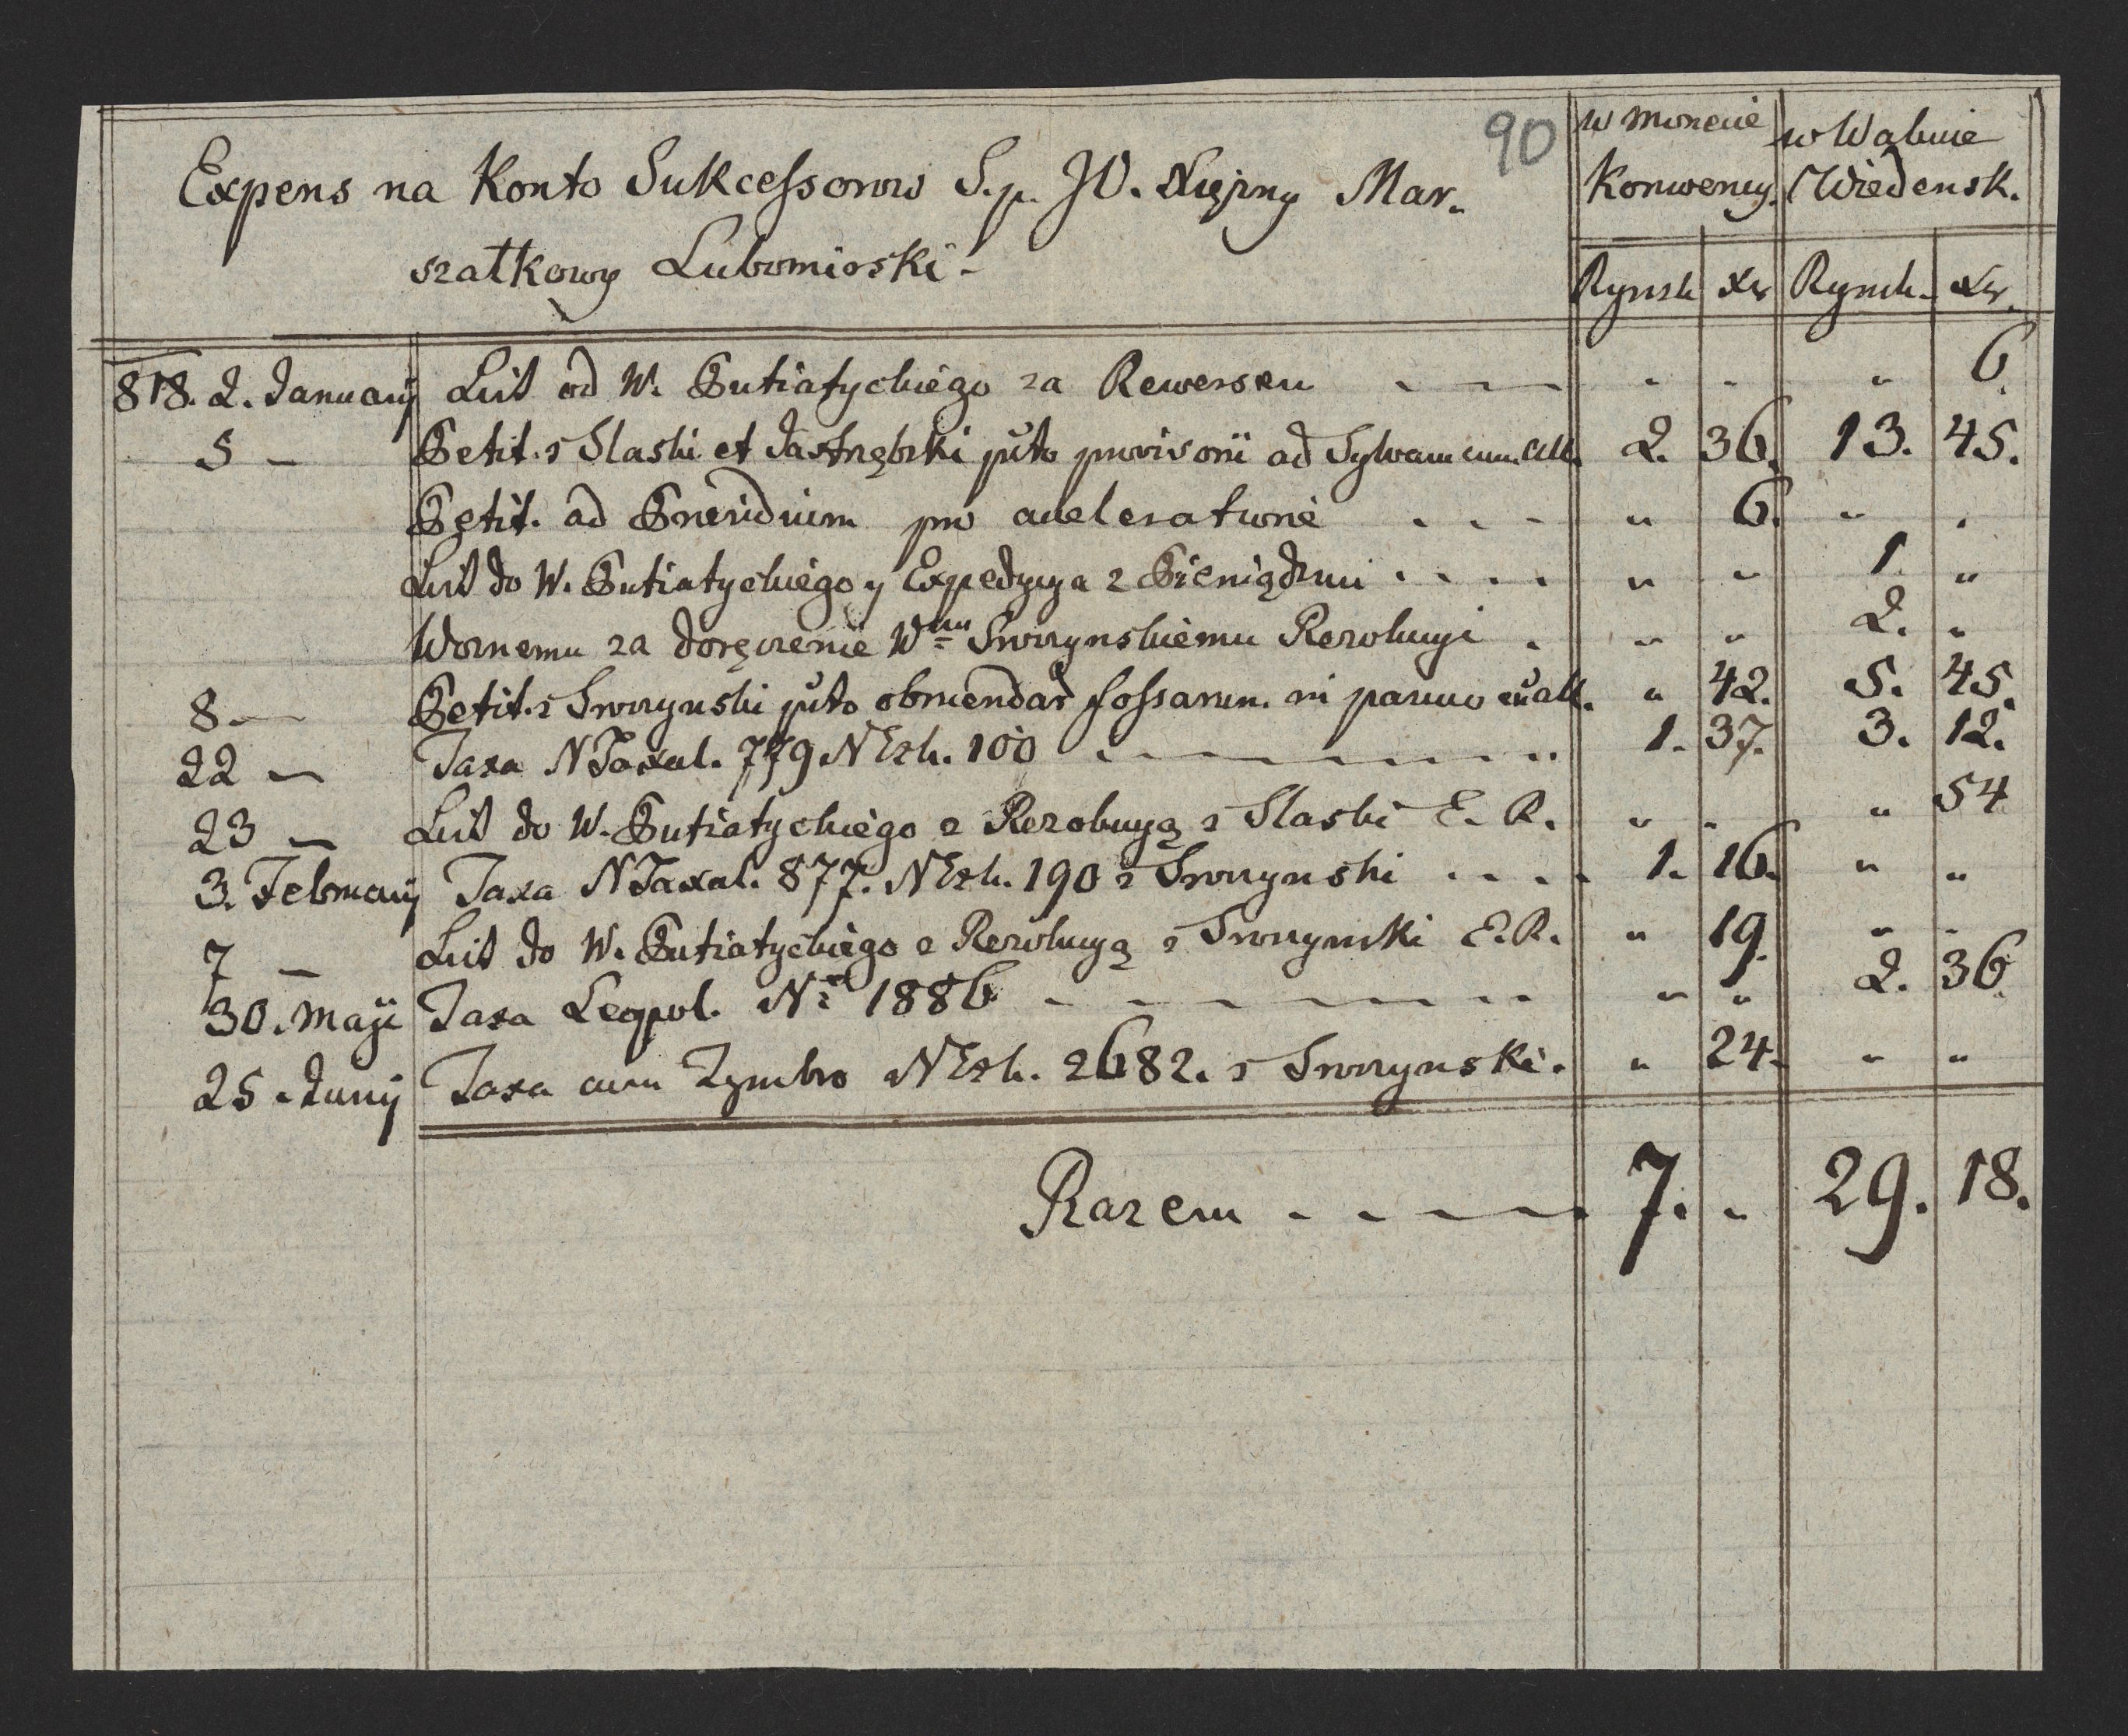 90
Expens na Konto Sukcessorow S.p. JO. Xiężny Mar-
szałkowy Lubomirski-
w Monecie Konwency. w Walucie Wiedensk.
Rynsk Xr Rynsk. Xr.
818. 2. January List od W. Putiatyckiego za Rewersem - - - " " " 6.
5 - Petit. Slaski et Jastrzębski pcto provisorii ad Sylvam cum All. 2. 36. 13. 45.
Petit. ad Presidium pro acceleratione . . . - " 6. " .
List do W. Putiatyckiego y Expedycya z Pieniędzmi . . . . " " 1. "
Woznemu za doręczenie Wmu Skrzynskiemu Rezolucyi . " " 2. "
8. - Petit. Skrzynski pcto obruendar fossarum in parvuo cu all. " 42. 5. 45.
22 - Taxa N Taxal. 779 N Exh. 100 - - - - 1. 37. 3. 12.
23 - List do W. Putiatyckiego z Rezolucyą Slaski E. R. " " " 54
3. February Taxa N Taxal. 877. N Exh. 190 Skrzynski . . . . 1. 16. " "
7 - List do W. Putiatyckiego z Rezolucyą Skrzynski E. R. " 19. " "
30. Maji Taxa Leopol. Nr 1886 - - - - " " 2. 36.
25. Junij Taxa cum Zymbro N Exh. 2682. Skrzynski. " 24. " "
Razem - - - - 7. - 29. 18.